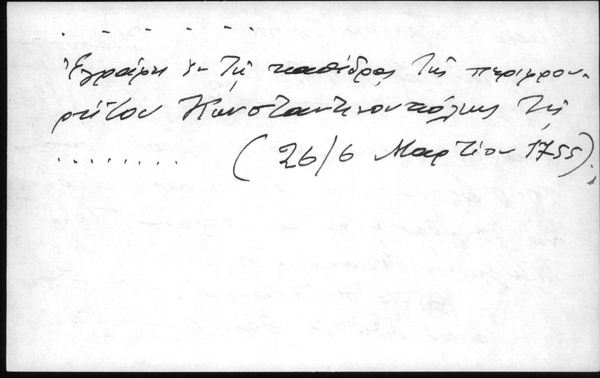 . . . . . .
Ἐγράφη ἐν τῇ καθέδρᾳ τῆς περιφρου-
ρήτου Κωνσταντινουπόλεως τῆς
. . . . . . . . (26/6 Μαρτίου 1755).